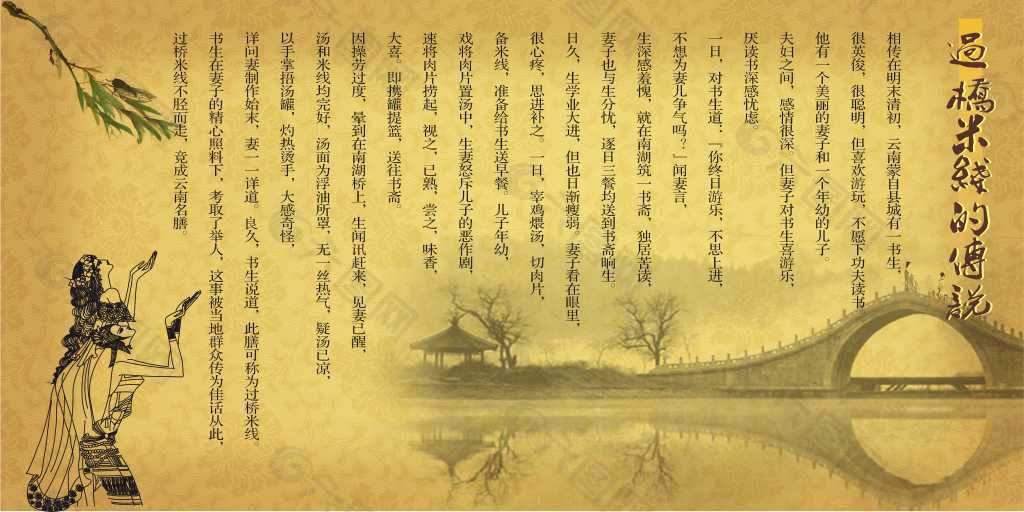 過橋米綫的傳説
相传在明末清初，云南蒙自县城有一书生，
很英俊，很聪明，但喜欢游玩，不愿下功夫读书
他有一个美丽的妻子和一个年幼的儿子。
夫妇之间，感情很深，但妻子对书生喜游乐，
厌读书深感忧虑。
一日，对书生道：「你终日游乐，不思上进，
不想为妻儿争气吗？」闻妻言，
生深感羞愧，就在南湖筑一书斋，独居苦读，
妻子也与生分忧，逐日三餐均送到书斋晌生。
日久，生学业大进，但也日渐瘦弱。妻子看在眼里，
很心疼，思进补之。一日，宰鸡煨汤，切肉片，
备米线，准备给书生送早餐。儿子年幼，
戏将肉片置汤中，生妻怒斥儿子的恶作剧，
速将肉片捞起，视之，已熟，尝之，味香，
大喜。即携罐提篮，送往书斋。
因操劳过度，晕到在南湖桥上，生闻讯赶来，见妻已醒，
汤和米线均完好，汤面为浮油所罩，无一丝热气，疑汤已凉，
以手掌捂汤罐，灼热烫手，大感奇怪，
详问妻制作始末，妻一一详道。良久，书生说道，此膳可称为过桥米线。
书生在妻子的精心照料下，考取了举人，这事被当地群众传为佳话从此，
过桥米线不胫而走，竟成云南名膳。